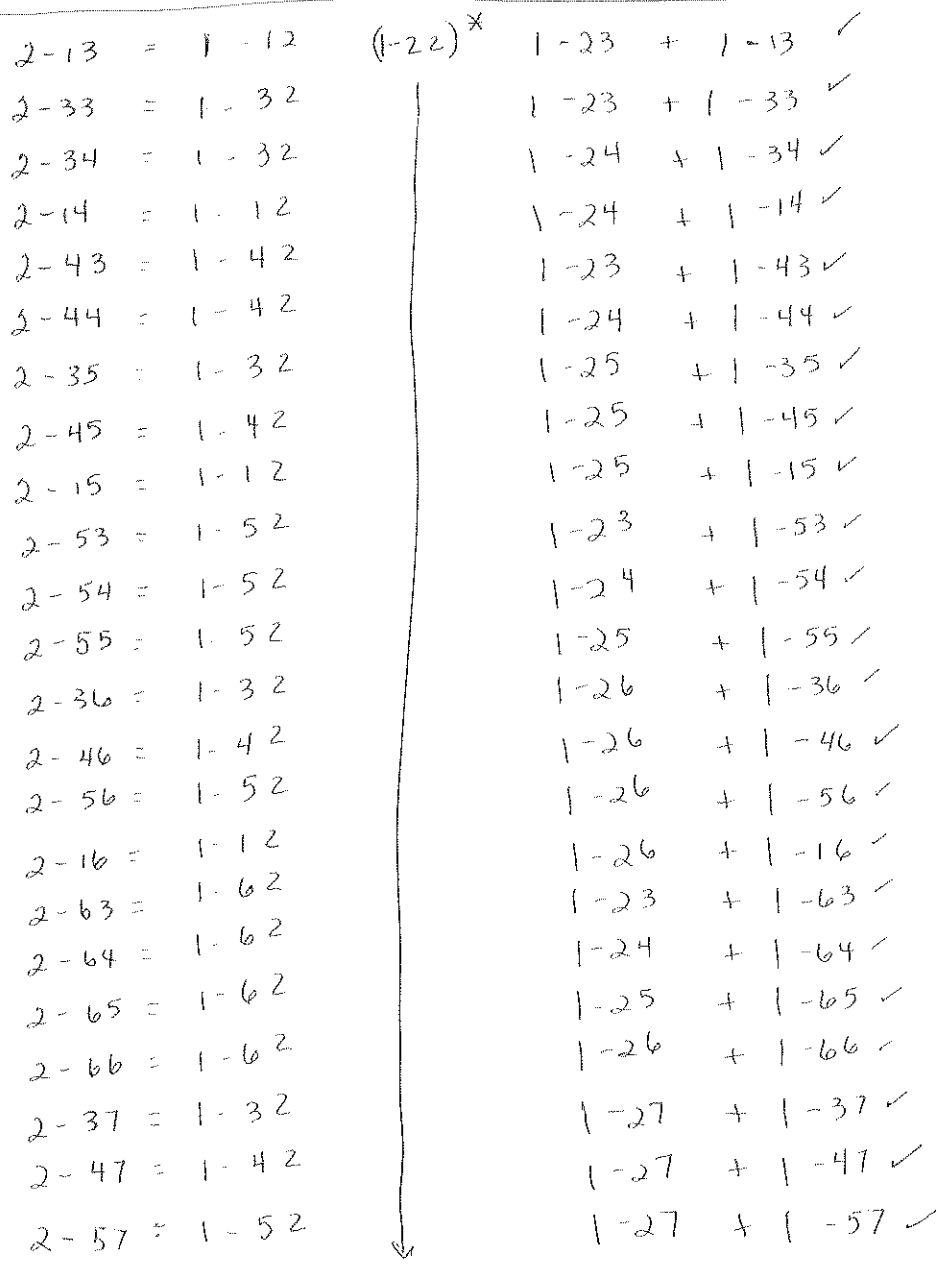 2-13 = 1-12 (1-22)* 1-23 + 1-13 ✓
2-33 = 1-32 1-23 + 1-33 ✓
2-34 = 1-32 1-24 + 1-34 ✓
2-14 = 1-12 1-24 + 1-14 ✓
2-43 = 1-42 1-23 + 1-43 ✓
2-44 = 1-42 1-24 + 1-44 ✓
2-35 = 1-32 1-25 + 1-35 ✓
2-45 = 1-42 1-25 + 1-45 ✓
2-15 = 1-12 1-25 + 1-15 ✓
2-53 = 1-52 1-23 + 1-53 ✓
2-54 = 1-52 1-24 + 1-54 ✓
2-55 = 1-52 1-25 + 1-55 ✓
2-36 = 1-32 1-26 + 1-36 ✓
2-46 = 1-42 1-26 + 1-46 ✓
2-56 = 1-52 1-26 + 1-56 ✓
2-16 = 1-12 1-26 + 1-16 ✓
2-63 = 1-62 1-23 + 1-63 ✓
2-64 = 1-62 1-24 + 1-64 ✓
2-65 = 1-62 1-25 + 1-65 ✓
2-66 = 1-62 1-26 + 1-66 ✓
2-37 = 1-32 1-27 + 1-37 ✓
2-47 = 1-42 1-27 + 1-47 ✓
2-57 = 1-52 1-27 + 1-57 ✓